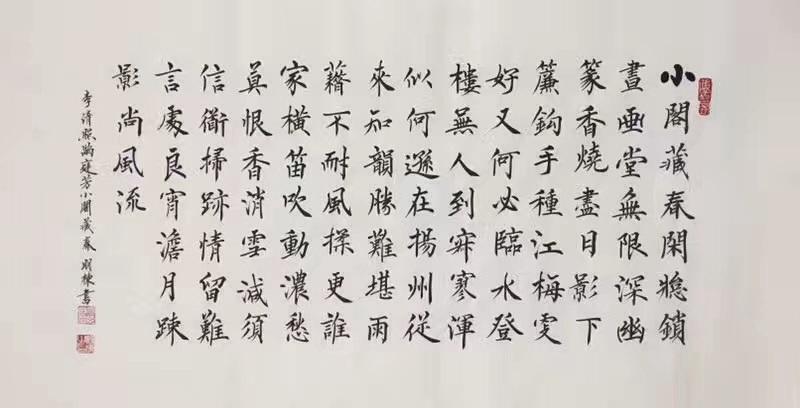 小閣藏春閑牕鎖
晝畫堂無限深幽
篆香燒盡日影下
簾鈎手種江梅
好又何必臨水登
樓無人到寂寥渾
似何遜在揚州從
來知韻勝難堪雨
藉不耐風揉更誰
家橫笛吹動濃愁
莫恨香消雪減須
信衟掃跡情留難
言處良宵澹月疎
影尚風流
李清照滿庭芳小閣藏春 棟書